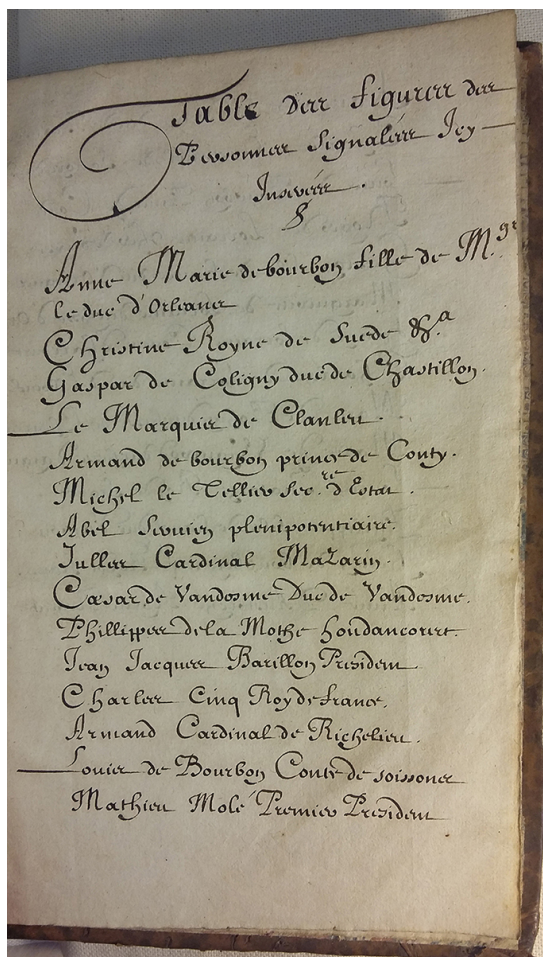 Table des figures des
Personnes signalées Icy
Inserées.
Anne Marie de bourbon fille de Mgr.
le duc d'Orleans
Christine Royne de Suede &a.
Gaspar de Coligny duc de Chastillon.
Le Marquis de Clanleu.
Armand de bourbon prince de Conty.
Michel le Tellier Sec.re d'Estat.
Abel Servien plenipotentiaire.
Julles Cardinal Mazarin.
Cæsar de Vandosme Duc de Vandosme.
Phillippes de la Mothe houdancourt.
Jean Jacques Barillon President
Charles Cinq Roy de france.
Armand Cardinal de Richelieu.
Louis de Bourbon Conte de soissons
Mathieu Molé Premier President